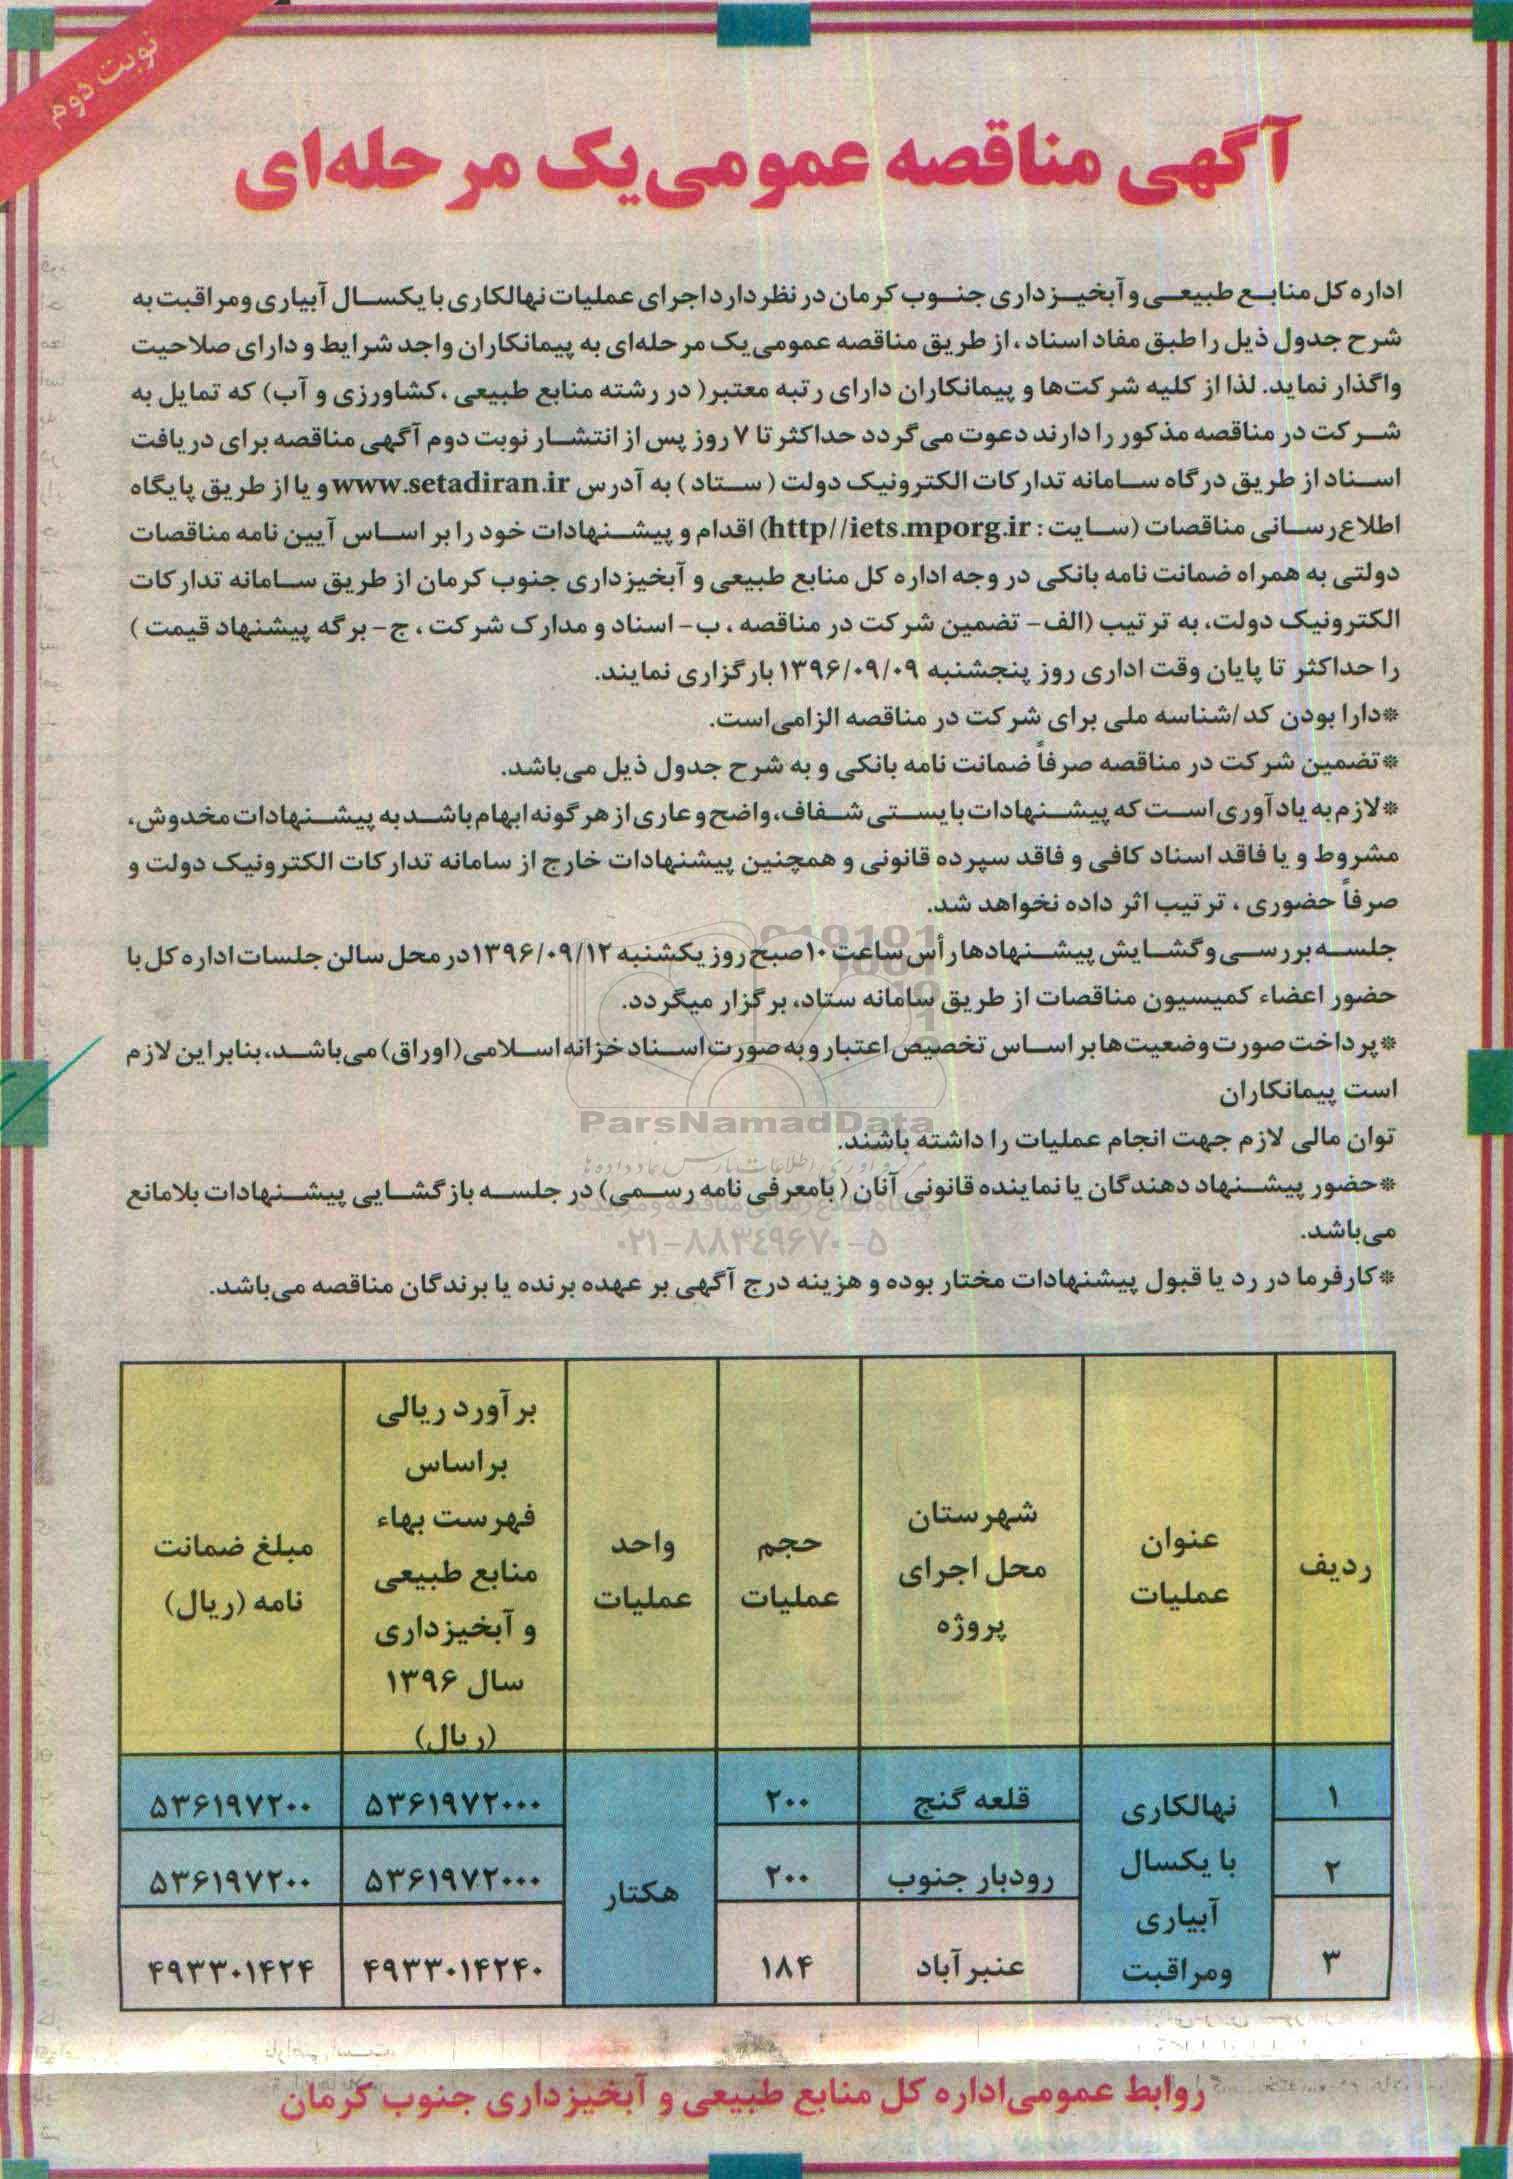 نوبت دوم
آگهی مناقصه عمومی یک مرحله‌ای
اداره کل منابع طبیعی و آبخیزداری جنوب کرمان در نظر دارد اجرای عملیات نهالکاری با یکسال آبیاری ومراقبت به
شرح جدول ذیل را طبق مفاد اسناد ، از طریق مناقصه عمومی یک مرحله‌ای به پیمانکاران واجد شرایط و دارای صلاحیت
واگذار نماید. لذا از کلیه شرکت‌ها و پیمانکاران دارای رتبه معتبر( در رشته منابع طبیعی ،کشاورزی و آب) که تمایل به
شرکت در مناقصه مذکور را دارند دعوت می‌گردد حداکثر تا ۷ روز پس از انتشار نوبت دوم آگهی مناقصه برای دریافت
اسناد از طریق درگاه سامانه تدارکات الکترونیک دولت ( ستاد ) به آدرس www.setadiran.ir و یا از طریق پایگاه
اطلاع‌رسانی مناقصات (سایت : http//iets.mporg.ir) اقدام و پیشنهادات خود را بر اساس آیین نامه مناقصات
دولتی به همراه ضمانت نامه بانکی در وجه اداره کل منابع طبیعی و آبخیزداری جنوب کرمان از طریق سامانه تدارکات
الکترونیک دولت، به ترتیب (الف- تضمین شرکت در مناقصه ، ب- اسناد و مدارک شرکت ، ج- برگه پیشنهاد قیمت )
را حداکثر تا پایان وقت اداری روز پنجشنبه ۱۳۹۶/۰۹/۰۹ بارگزاری نمایند.
*دارا بودن کد/شناسه ملی برای شرکت در مناقصه الزامی‌است.
*تضمین شرکت در مناقصه صرفاً ضمانت نامه بانکی و به شرح جدول ذیل می‌باشد.
*لازم به یادآوری است که پیشنهادات بایستی شفاف، واضح و عاری از هر گونه ابهام باشد به پیشنهادات مخدوش،
مشروط و یا فاقد اسناد کافی و فاقد سپرده قانونی و همچنین پیشنهادات خارج از سامانه تدارکات الکترونیک دولت و
صرفاً حضوری ، ترتیب اثر داده نخواهد شد.
جلسه بررسی و گشایش پیشنهادها رأس ساعت ۱۰ صبح روز یکشنبه ۱۳۹۶/۰۹/۱۲ در محل سالن جلسات اداره کل با
حضور اعضاء کمیسیون مناقصات از طریق سامانه ستاد، برگزار میگردد.
*پرداخت صورت وضعیت‌ها بر اساس تخصیص اعتبار و به صورت اسناد خزانه اسلامی(اوراق) می‌باشد، بنابراین لازم
است پیمانکاران
توان مالی لازم جهت انجام عملیات را داشته باشند.
*حضور پیشنهاد دهندگان یا نماینده قانونی آنان ( بامعرفی نامه رسمی) در جلسه بازگشایی پیشنهادات بلامانع
می‌باشد.
*کارفرما در رد یا قبول پیشنهادات مختار بوده و هزینه درج آگهی بر عهده برنده یا برندگان مناقصه می‌باشد.
ParsNamadData
پایگاه اطلاع رسانی مناقصه و مزایده
۰۲۱-۸۸۳۴۹۶۷۰-۵
ردیف | عنوان عملیات | شهرستان محل اجرای پروژه | حجم عملیات | واحد عملیات | برآورد ریالی براساس فهرست بهاء منابع طبیعی و آبخیزداری سال ۱۳۹۶ (ریال) | مبلغ ضمانت نامه (ریال)
۱ | نهالکاری با یکسال آبیاری ومراقبت | قلعه گنج | ۲۰۰ | هکتار | ۵۳۶۱۹۷۲۰۰۰ | ۵۳۶۱۹۷۲۰۰
۲ | رودبار جنوب | ۲۰۰ | ۵۳۶۱۹۷۲۰۰۰ | ۵۳۶۱۹۷۲۰۰
۳ | عنبرآباد | ۱۸۴ | ۴۹۳۳۰۱۴۲۴۰ | ۴۹۳۳۰۱۴۲۴
روابط عمومی اداره کل منابع طبیعی و آبخیزداری جنوب کرمان